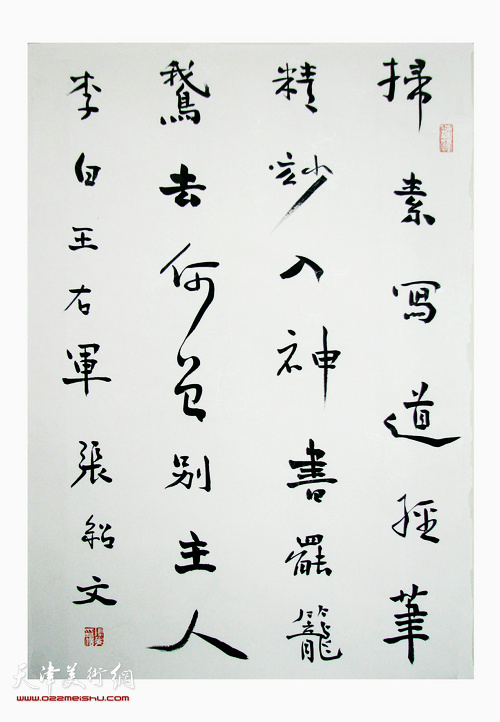 掃素寫道經筆
精妙入神書罷籠
鵞去何曾別主人
李白王右軍張紹文
天津美術網
www.022meishu.com